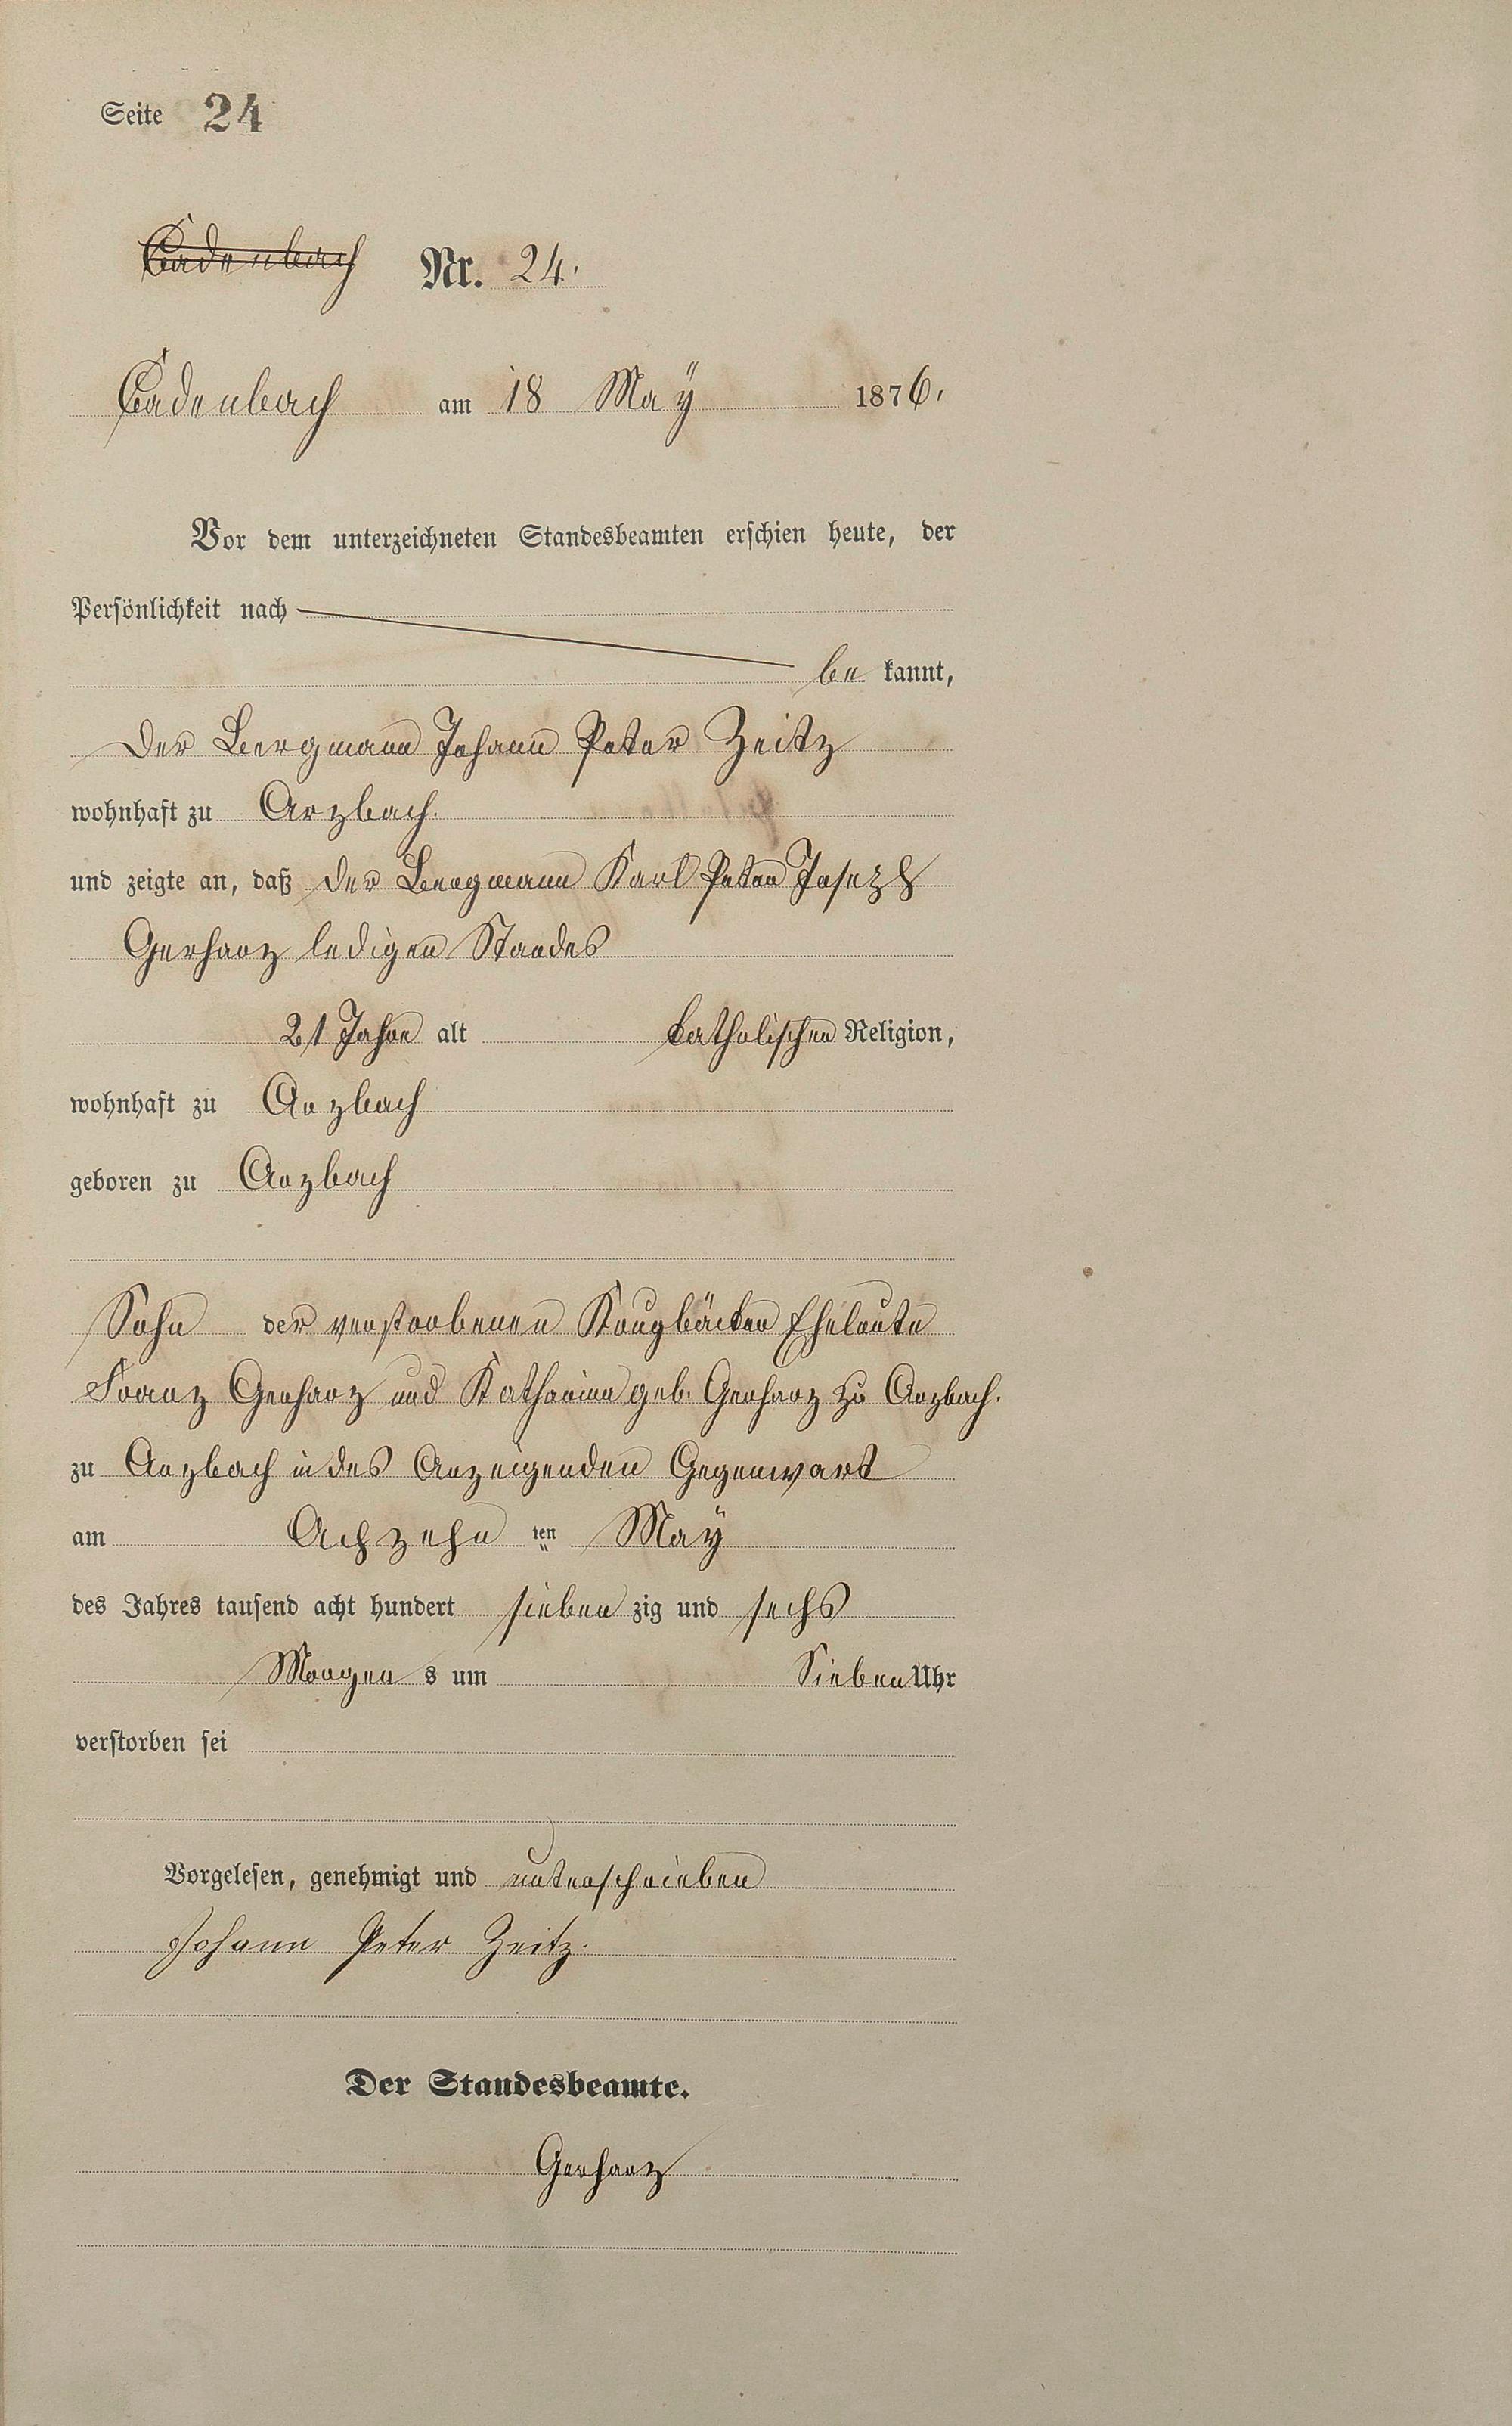 Seite 24
Cadenbach Nr. 24.
Cadenbach am 18 Maÿ 1876.
Vor dem unterzeichneten Standesbeamten erschien heute, der
Persönlichkeit nach
be kannt,
der Bergmann Johann Peter Zeitz
wohnhaft zu Arzbach.
und zeigte an, daß der Bergmann Karl Peter Joseph
Gerharz ledigen Standes
21 Jahre alt katholischen Religion,
wohnhaft zu Arzbach
geboren zu Arzbach
Sohn der verstorbenen Krugbäcker Eheleute
Franz Gerharz und Katharina geb. Gerharz zu Arzbach.
zu Arzbach in des Anzeigenden Gegenwart
am Achzehn ten Maÿ
des Jahres tausend acht hundert sieben zig und sechs
Morgen s um Sieben Uhr
verstorben sei
Vorgelesen, genehmigt und unterschrieben
Johann Peter Zeitz.
Der Standesbeamte.
Gerharz